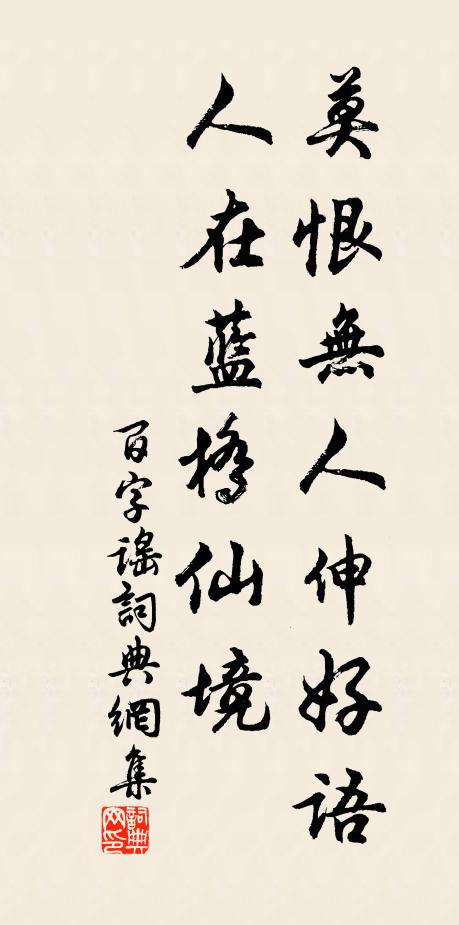 莫恨無人伸好語
人在藍橋仙境
百字謠詞典網集
詞典
网印